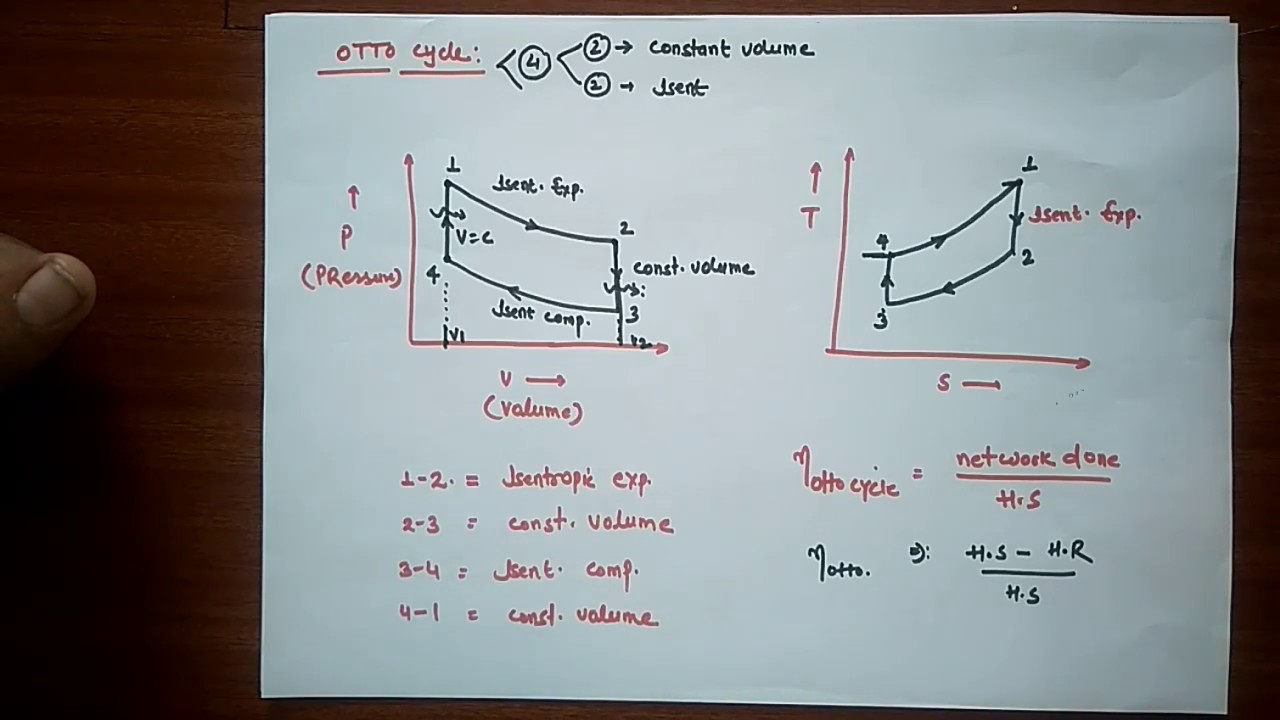 OTTO cycle: < 4 < 2 → constant volume
2 → Isent
1
Isent. Exp.
2
↑
P
(Pressure)
V=C
4
const. volume
Isent comp.
3
V1
V2
V →
(Volume)
↑
T
1
Isent. Exp.
4
2
3
S →
1-2. = Isentropic exp.
2-3 = const. volume
3-4 = Isent. comp.
4-1 = const. volume
η otto cycle = net work done / H.S
η otto. ⇒: H.S - H.R / H.S